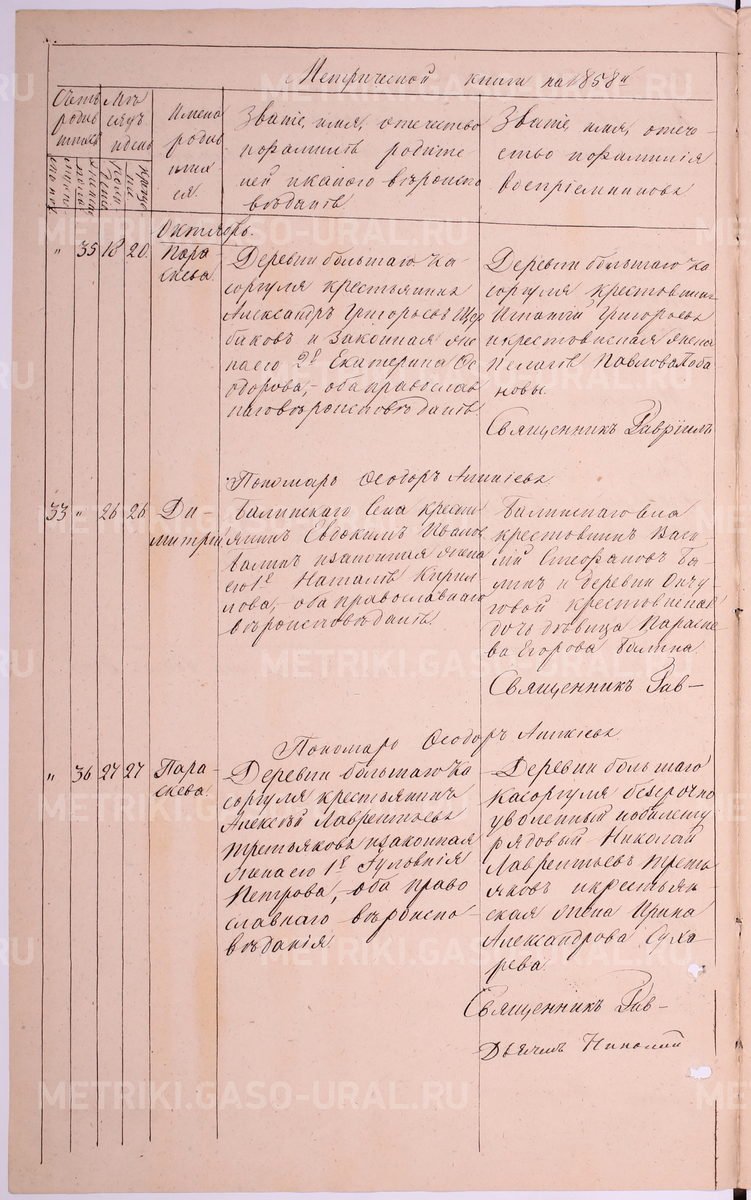 Метрической книги на 1858й
Счетъ родив шихся
Мѣ сяцъ и день
Имена родив шихся.
Званіе, имя, отечество
пофамилiѣ родите
лей и какого вѣроиспо
вѣданiѣ.
Званіе, имя, отече-
ство пофамилiя
воспрiемниковъ
Октябрь.
" 35 18 20. Пара
скева.
Деревни большаго Ка
соргуля крестьянинъ
Александръ Григорьевъ Щер
баковъ и законная же
на его 2й Екатерина Өе
одорова, – оба православ
наго вѣроисповѣданiѣ
Деревни большаго Ка
соргуля крестьянинъ
Игнатiй Григорьевъ
и крестьянская жена
Пелагѣя Павлова Лоба
новы.
Священникъ Гаврiилъ
Пономарь Өеодоръ
33 " 26 26 Ди
митрiй
Балинскаго села кресть
янинъ Евдокимъ Иванов
Балинъ и законная жена
его 1й Наталья Кирил
лова, – оба православнаго
вѣроисповѣданiѣ
Балинскаго села
крестьянинъ Васи
лiй Стефановъ Ба
линъ и деревни
крестьянская
дочь дѣвица Параске
ва Егорова Балина.
Священникъ Гав–
Пономарь Өеодоръ
" 36 27 27 Пара
скева.
Деревни большаго Ка
соргуля крестьянинъ
Алексѣй Лаврентьевъ
Третьяковъ и законная
жена его 1й Iуловнiя
Петрова, оба право
славнаго вѣроиспо–
вѣданiя
Деревни большаго
Касоргуля безсрочно
уволенный побилету
рядовый Николай
Лаврентьевъ Треть
яковъ и крестьян-
ская жена Ирина
Александрова Суха
рева.
Священникъ Гав–
Дьячекъ Николай
METRIKI.GASO-URAL.RU